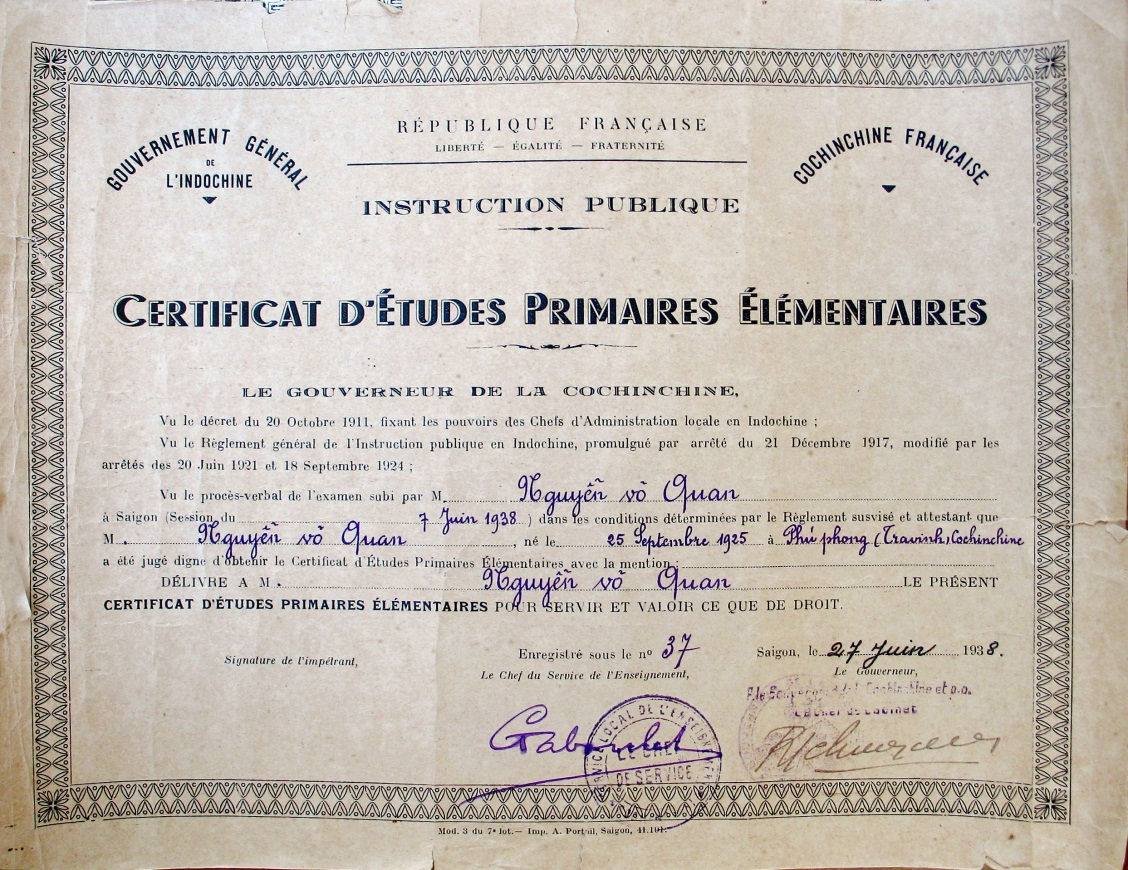 GOUVERNEMENT GÉNÉRAL
DE
L'INDOCHINE
RÉPUBLIQUE FRANÇAISE
LIBERTÉ — ÉGALITÉ — FRATERNITÉ
COCHINCHINE FRANÇAISE
INSTRUCTION PUBLIQUE
CERTIFICAT D'ÉTUDES PRIMAIRES ÉLÉMENTAIRES
LE GOUVERNEUR DE LA COCHINCHINE,
Vu le décret du 20 Octobre 1911, fixant les pouvoirs des Chefs d'Administration locale en Indochine ;
Vu le Règlement général de l'Instruction publique en Indochine, promulgué par arrêté du 21 Décembre 1917, modifié par les
arrêtés des 20 Juin 1921 et 18 Septembre 1924 ;
Vu le procès-verbal de l'examen subi par M. Nguyễn võ Quan
à Saigon (Session du 7 Juin 1938 ) dans les conditions déterminées par le Règlement susvisé et attestant que
M. Nguyễn võ Quan , né le 25 Septembre 1925 à Phú phong (Travinh) Cochinchine
a été jugé digne d'obtenir le Certificat d'Études Primaires Élémentaires avec la mention :
DÉLIVRE A M. Nguyễn võ Quan LE PRÉSENT
CERTIFICAT D'ÉTUDES PRIMAIRES ÉLÉMENTAIRES POUR SERVIR ET VALOIR CE QUE DE DROIT.
Signature de l'impétrant,
Enregistré sous le n° 37
Le Chef du Service de l'Enseignement,
Saigon, le 27 Juin 1938.
Le Gouverneur,
P. le Gouverneur de la Cochinchine et p.o.
Le Chef de Cabinet
LOCAL DE L'ENSEIGN
LE CHEF
DE SERVICE
Mod. 3 du 7e lot.— Imp. A. Portail, Saigon, 41.101.